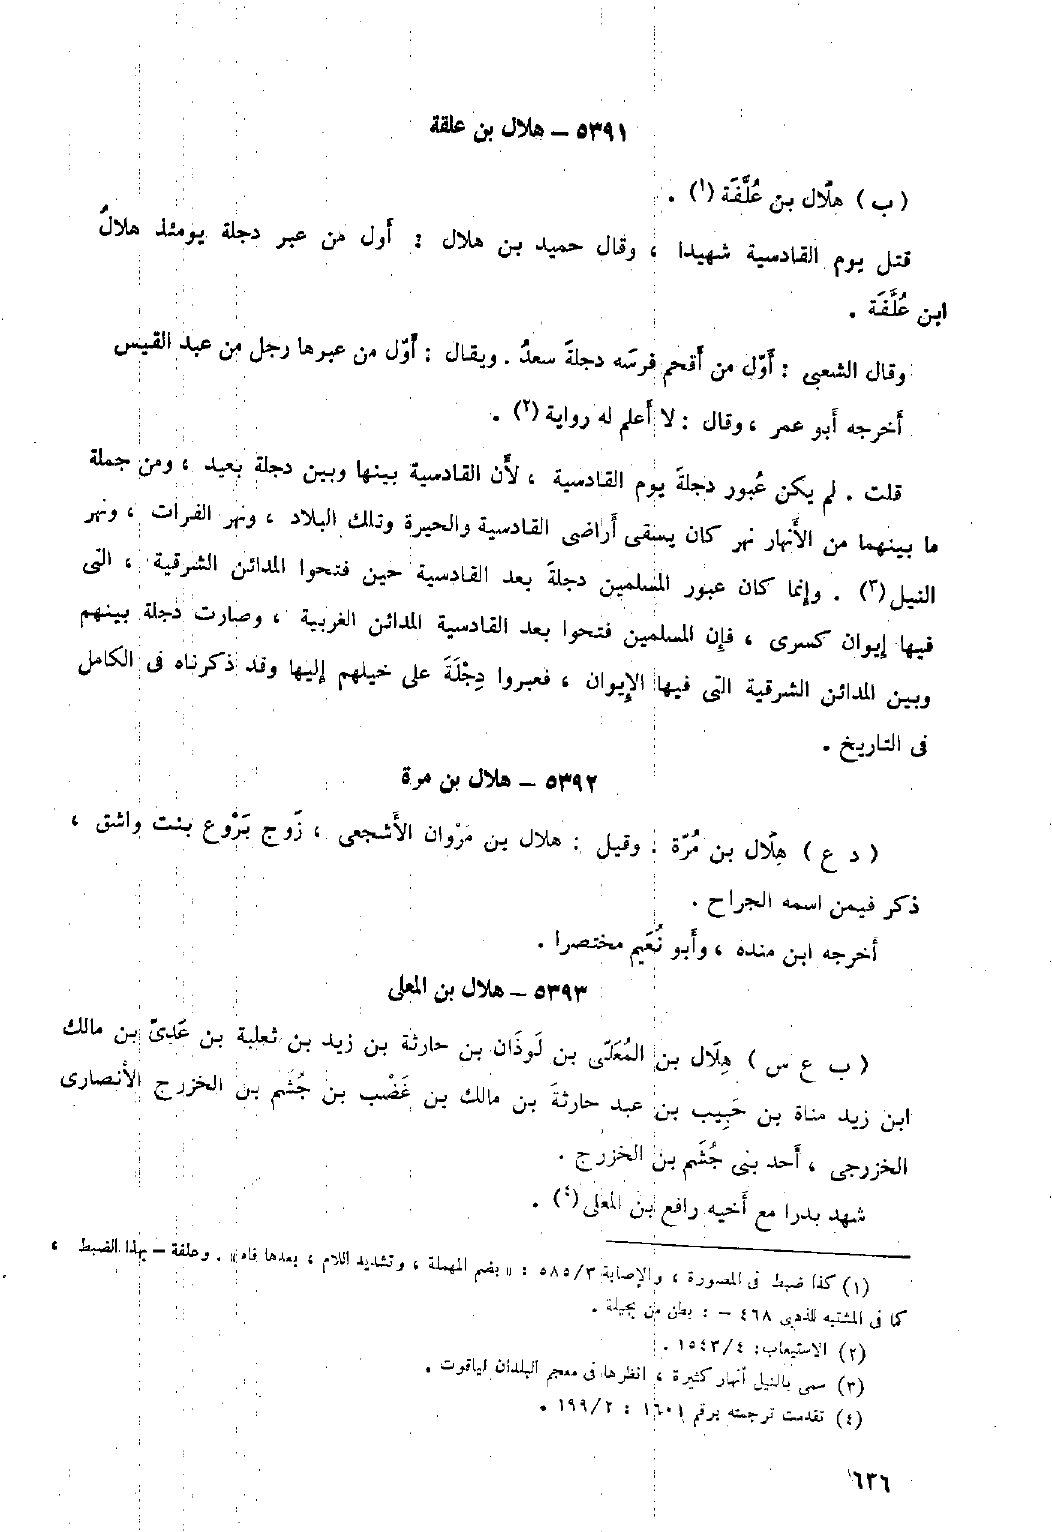 ٥٣٩١ – هلال بن علقة
( ب ) هلَال بن عُلَّفَة (١) .
قتل يوم القادسية شهيدا ، وقال حميد بن هلال : أول من عبر دجلة يومئذ هلالُ
ابن عُلَّفَة .
وقال الشعبى : أَوّل من أَقحم فرسَه دجلةَ سعدٌ . ويقال : أَوّل من عبرها رجل من عبد القيس
أخرجه أبو عمر ، وقال : لا أَعلم له رواية (٢) .
قلت . لم يكن عُبور دجلةَ يوم القادسية ، لأَن القادسية بينها وبين دجلة بعيد ، ومن جملة
ما بينهما من الأَنهار نهر كان يسقى أَراضى القادسية والحيرة وتلك البلاد ، ونهر الفرات ، ونهر
النيل (٣) . وإنما كان عبور المسلمين دجلةَ بعد القادسية حين فتحوا المدائن الشرقية ، التى
فيها إيوان كسرى ، فإن المسلمين فتحوا بعد القادسية المدائن الغربية ، وصارت دجلة بينهم
وبين المدائن الشرقية التى فيها الإيوان ، فعبروا دِجْلَةَ على خيلهم إليها وقد ذكرناه فى الكامل
فى التاريخ .
٥٣٩٢ – هلال بن مرة
( د ع ) هِلَال بن مُرّة . وقيل : هلال بن مَرْوان الأَشجعى ، زَوج بَرْوع بنت واشق ،
ذكر فيمن اسمه الجراح .
أخرجه ابن منده ، وأَبو نُعَيم مختصرا .
٥٣٩٣ – هلال بن المعلى
( ب ع س ) هِلَال بن المُعَلّى بن لَوذَان بن حارثة بن زيد بن ثعلبة بن عَدِىّ بن مالك
ابن زيد مناة بن حَبِيب بن عبد حارثةَ بن مالك بن غَضْب بن جُشَم بن الخزرج الأَنصارى
الخزرجى ، أَحد بنى جُشَم بن الخزرج .
شهد بدرا مع أَخيه رافع بن المعلى (٤) .
(١) كذا ضبط فى المصورة ، والإصابة ٥٨٥/٣ : « بضم المهملة ، وتشديد اللام ، بعدها فاء » . وعلفة – بهذا الضبط ،
كما فى المشتبه للذهبى ٤٦٨ – : بطن من بجيلة .
(٢) الاستيعاب: ١٥٤٣/٤ .
(٣) سمى بالنيل أنهار كثيرة ، انظرها فى معجم البلدان لياقوت .
(٤) تقدمت ترجمته برقم ١٦٠١ : ١٩٩/٢ .
٦٣٦